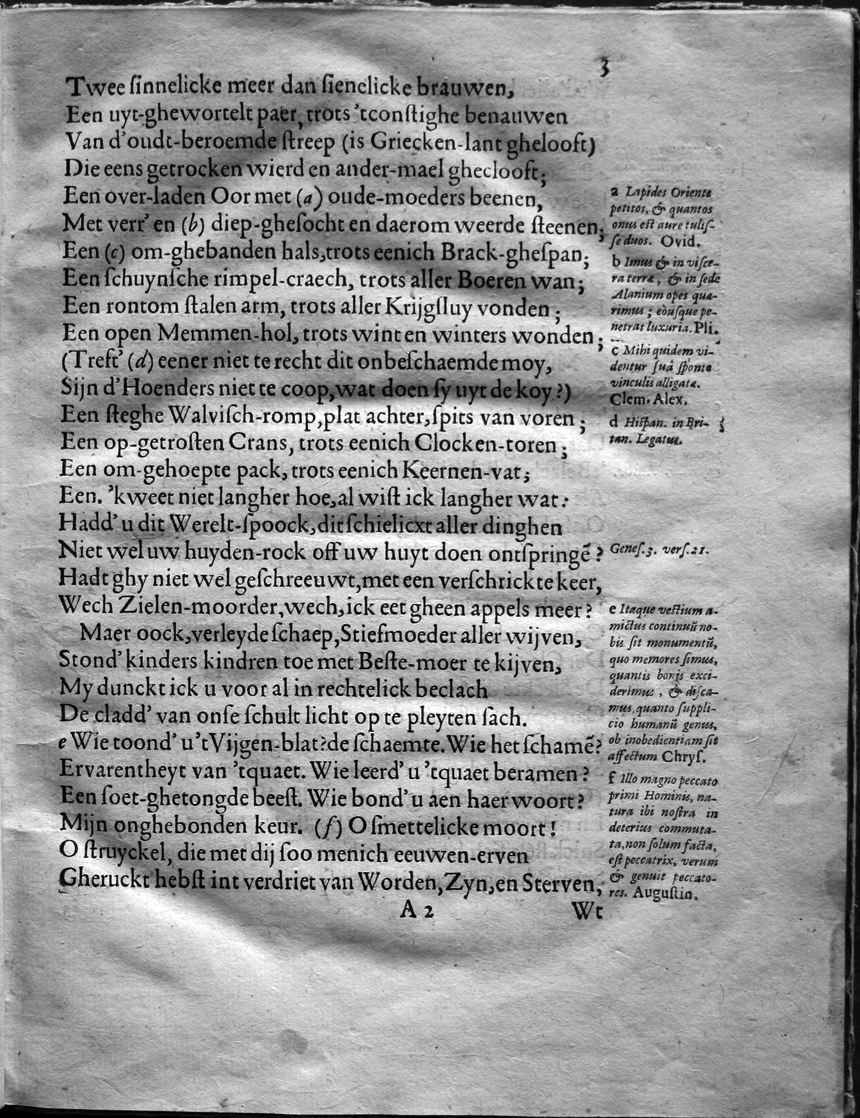 3
Twee ſinnelicke meer dan ſienelicke brauwen,
Een uyt-ghewortelt paer, trots 'tconſtighe benauwen
Van d'oudt-beroemde ſtreep (is Griecken-lant ghelooft)
Die eens getrocken wierd en ander-mael ghecloof t;
Een over-laden Oor met (a) oude-moeders beenen,
Met verr' en (b) diep-gheſocht en daerom weerde ſteenen;
Een (c) om-ghebanden hals, trots eenich Brack-gheſpan;
Een ſchuynſche rimpel-craech, trots aller Boeren wan;
Een rontom ſtalen arm, trots aller Krijgſluy vonden;
Een open Memmen-hol, trots wint en winters wonden;
(Treft' (d) eener niet te recht dit onbeſchaemde moy,
Sijn d'Hoenders niet te coop, wat doen ſy uyt de koy?)
Een ſteghe Walviſch-romp, plat achter, ſpits van voren;
Een op-getroſten Crans, trots eenich Clocken-toren;
Een om-gehoepte pack, trots eenich Keernen-vat;
Een. 'kweet niet langher hoe, al wiſt ick langher wat:
Hadd' u dit Werelt-ſpoock, dit ſchielicxt aller dinghen
Niet wel uw huyden-rock off uw huyt doen ontſpringē?
Hadt ghy niet wel geſchreeuwt, met een verſchrickte keer,
Wech Zielen-moorder, wech, ick eet gheen appels meer?
Maer oock, verleyde ſchaep, Stiefmoeder aller wijven,
Stond' kinders kindren toe met Beſte-moer te kijven,
My dunckt ick u voor al in rechtelick beclach
De cladd' van onſe ſchult licht op te pleyten ſach.
e Wie toond' u 't Vijgen-blat? de ſchaemte. Wie het ſchamē?
Ervarentheyt van 'tquaet. Wie leerd' u 'tquaet beramen?
Een ſoet-ghetongde beeſt. Wie bond' u aen haer woort?
Mijn onghebonden keur. (f) O ſmettelicke moort!
O ſtruyckel, die met dij ſoo menich eeuwen-erven
Gheruckt hebſt int verdriet van Worden, Zyn, en Sterven,
A 2
Wt
a Lapides Oriente
petitos, & quantos
onus eſt aure tuliſ-
ſe duos. Ovid.
b Imus & in viſce-
ra terræ, & in ſede
Manium opes quæ-
rimus; eouſque pe-
netrat luxuria. Pli.
c Mihi quidem vi-
dentur ſuâ ſponte
vinculis alligatæ.
Clem. Alex.
d Hiſpan. in Bri-
tan. Legatus.
Geneſ. 3. verſ. 21.
e Itaque veſtium a-
mictus continuū no-
bis ſit monumentū,
quo memores ſimus,
quantis bonis exci-
derimus, & diſca-
mus, quanto ſuppli-
cio humanū genus,
ob inobedientiam ſit
affectum Chryſ.
f Illo magno peccato
primi Hominis, na-
tura ibi noſtra in
deterius commuta-
ta, non ſolum facta,
eſt peccatrix, verum
& genuit peccato-
res. Auguſtin.